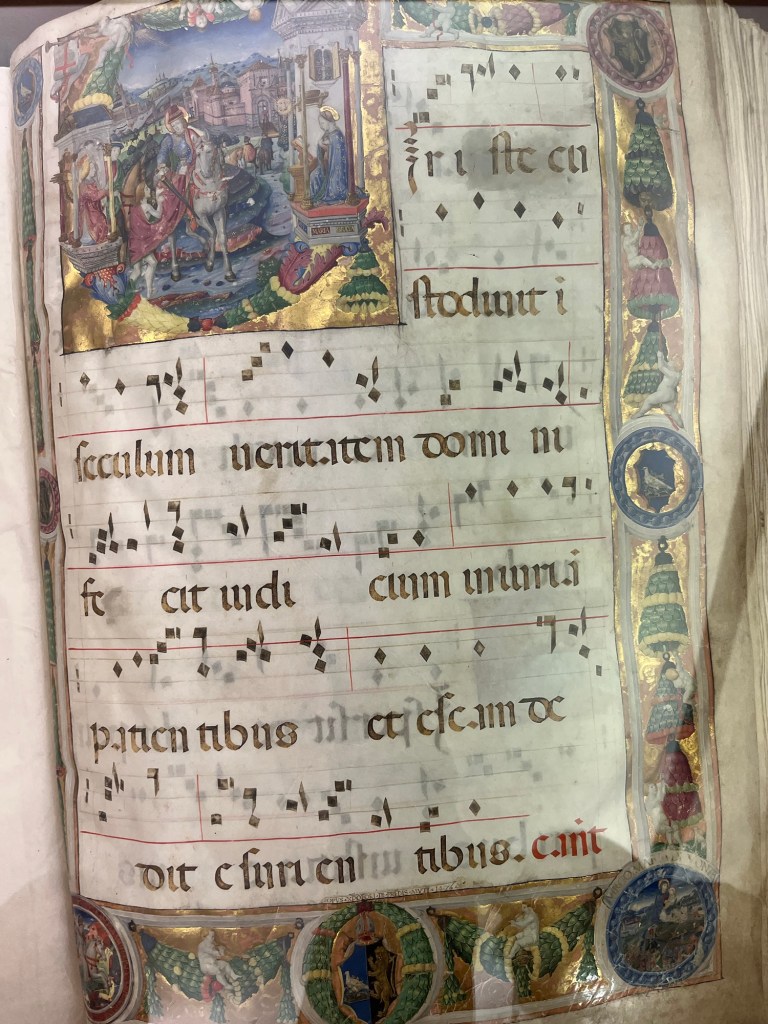 ir iste cu
stodiuit ī
seculum ueritatem domi ni
fe cit iudi cium iniuriā
patien tibus et escam de
dit esurien tibus.